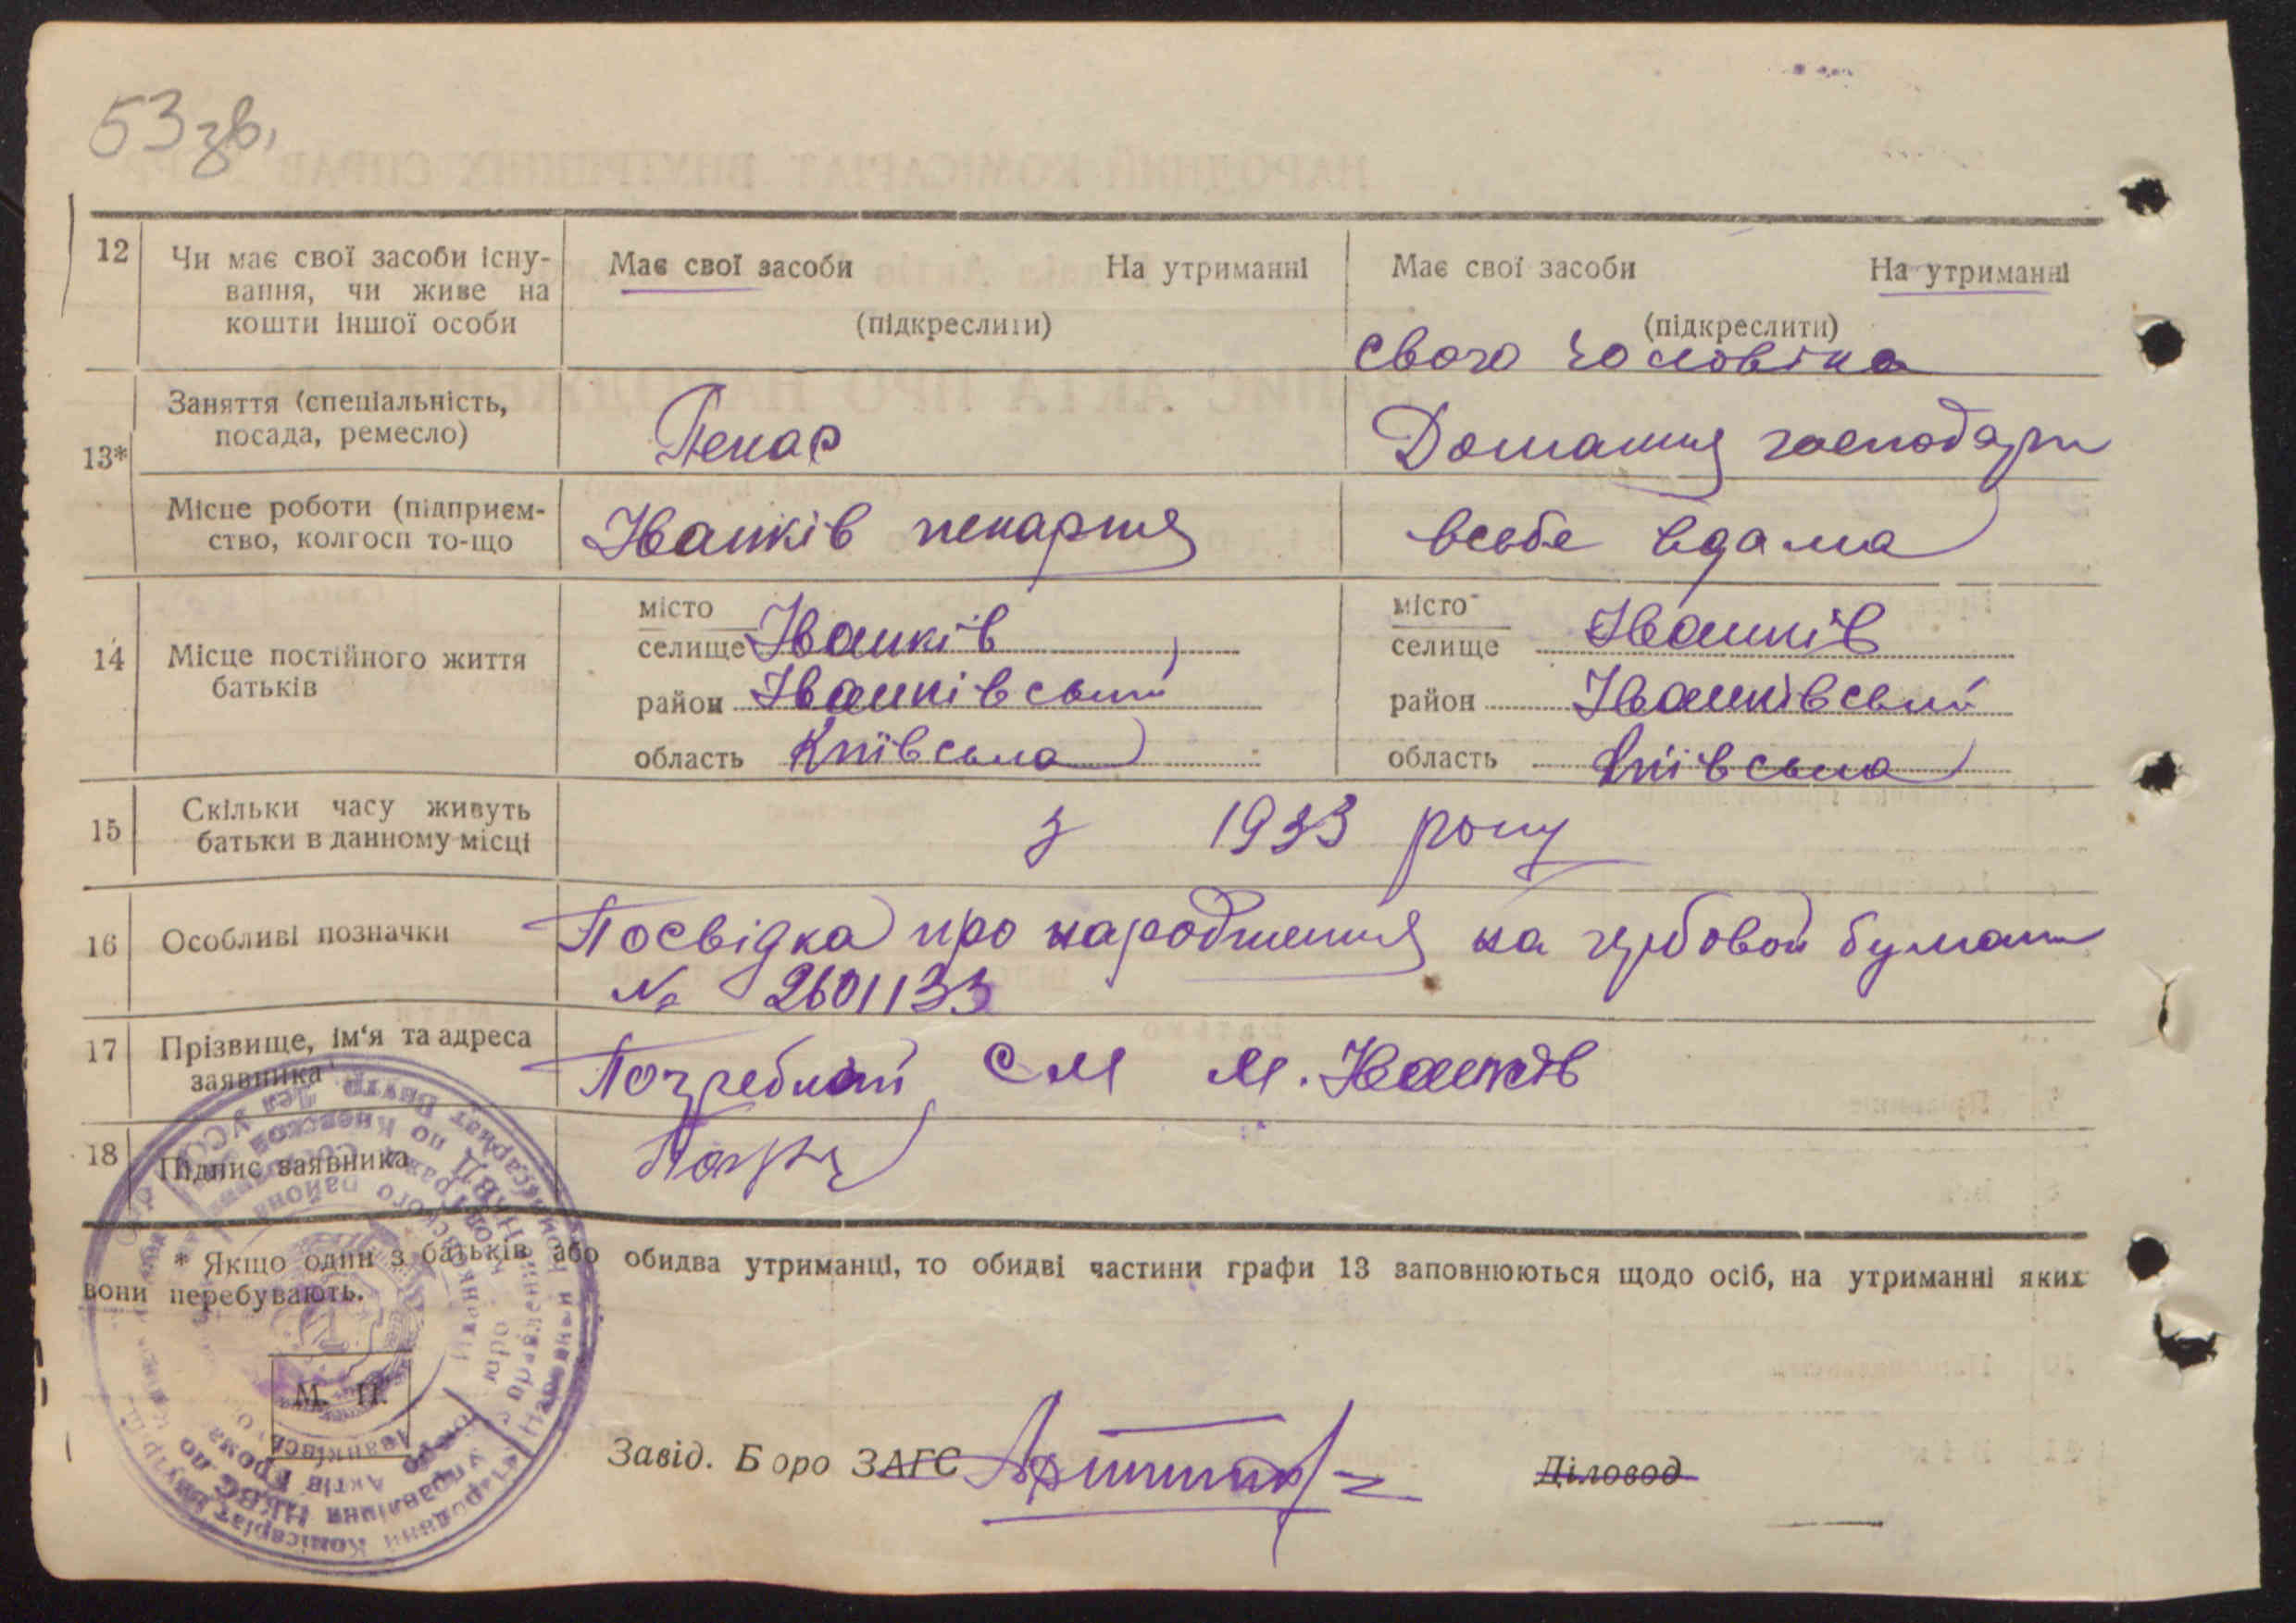 53 зв.
12
Чи має свої засоби існу-
вання, чи живе на
кошти іншої особи
Має свої засоби На утриманні
(підкреслити)
Має свої засоби На утриманні
(підкреслити)
свого чоловіка
13*
Заняття (спеціальність,
посада, ремесло)
Пекар
Домашня господарк
Місце роботи (підприєм-
ство, колгосп то-що
Іванків пекарня
всебе вдома
14
Місце постійного життя
батьків
місто
селище Іванків
район Іванківський
область Київська
місто
селище Іванків
район Іванківський
область Київська
15
Скільки часу живуть
батьки в данному місці
з 1933 року
16
Особливі позначки
Посвідка про народження на гербовой бумаги
№ 2601133
17
Прізвище, ім'я та адреса
заявника
Погребной С М м. Іванків
18
Підпис заявника
* Якщо один з батьків або обидва утриманці, то обидві частини графи 13 заповнюються щодо осіб, на утриманні яких
вони перебувають.
М. П.
Завід. Бюро ЗАГС
Діловод